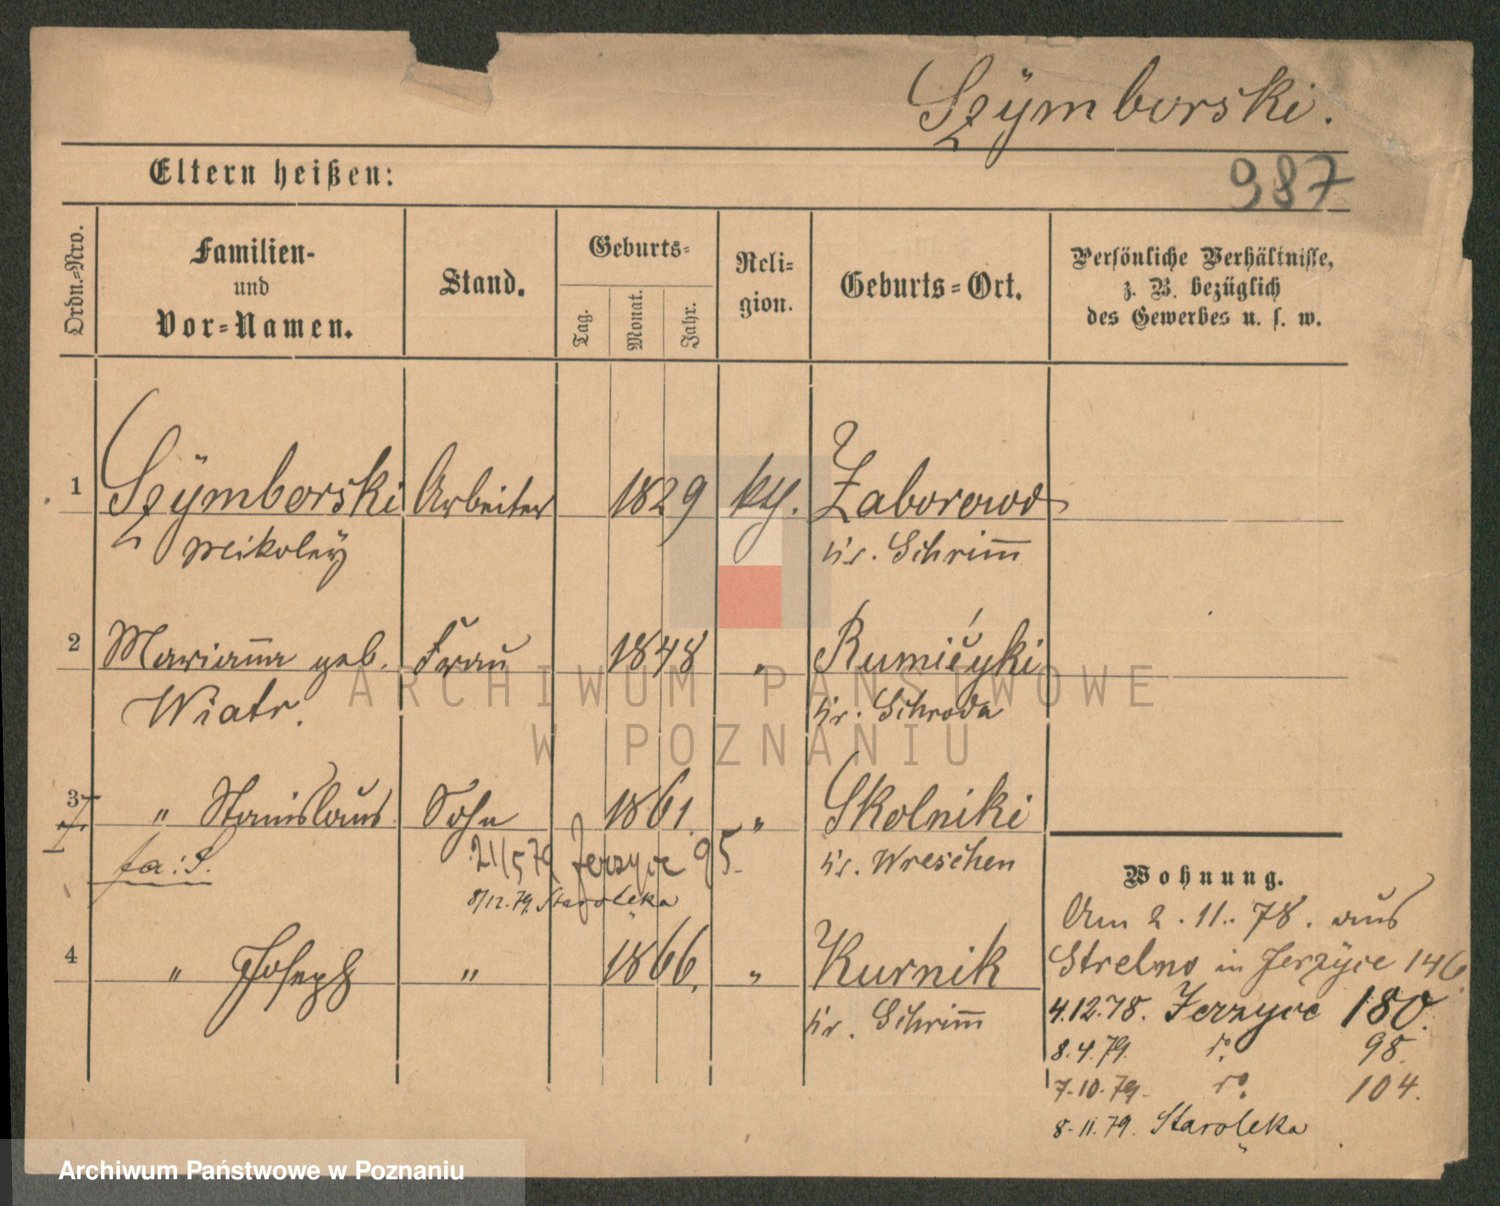 Szÿmborski.
Eltern heißen:
987
Ordn.-Nro.
Familien-
und
Vor-Namen.
Stand.
Geburts-
Tag.
Monat.
Jahr.
Reli-
gion.
Geburts-Ort.
Persönliche Verhältnisse,
z. B. bezüglich
des Gewerbes u. s. w.
1 Szÿmborski Arbeiter 1829 kth. Zaborowo
Mikolaÿ Kr. Schrim̅
2 Marian̅a geb. Frau 1848 " Rumićyki
Wiatr. Kr. Schroda
3 " Stanislaus Sohn 1861. " Skolniki
fa: S. 21/5 79 Jerzyce 95. Kr. Wreschen
8/12. 79. Starolęka
4 " Joseph " 1866. " Kurnik
Kr. Schrim̅
Wohnung.
Am 2. 11. 78. aus
Strelno in Jerzÿce 146.
4.12.78. Jerzyce 180.
8.4.79. do 95.
7.10.79. do 104.
8.11.79. Starolęka
ARCHIWUM PAŃSTWOWE
W POZNANIU
Archiwum Państwowe w Poznaniu